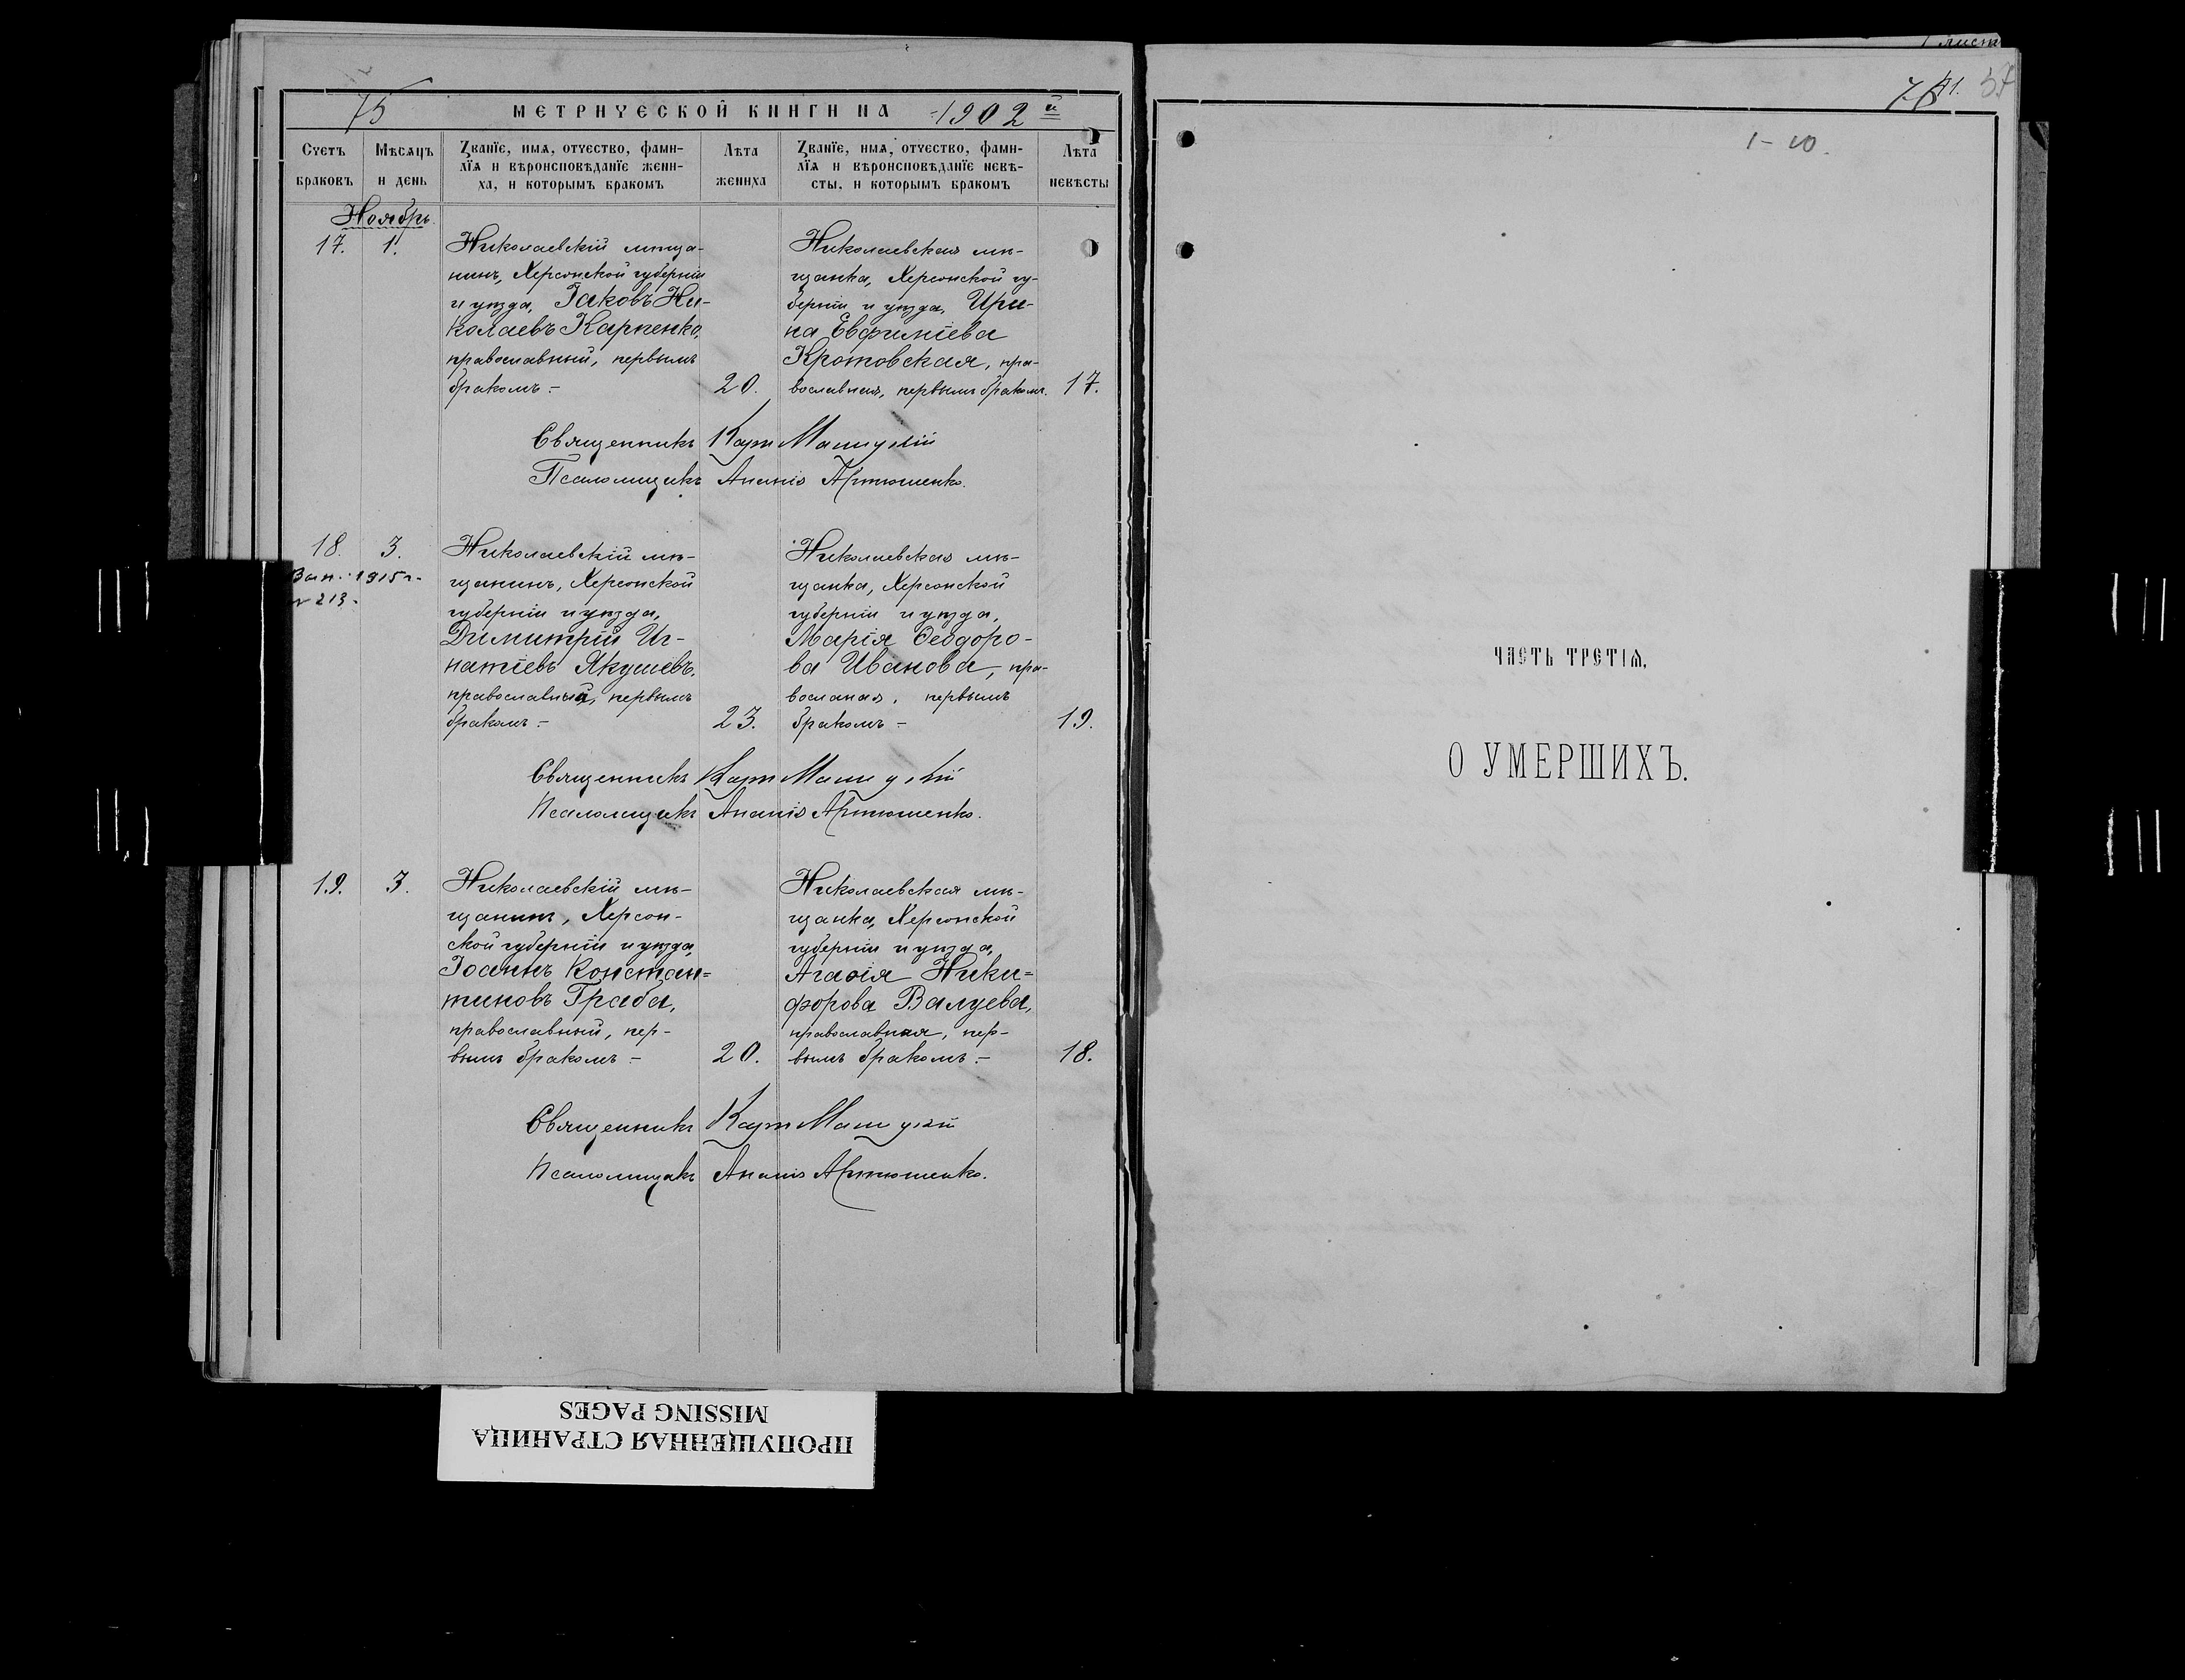 75 МЕТРИЧЕСКОЙ КНИГИ НА 1902й
Счетъ браковъ
Мѣсяцъ и день
Званїе, имя, отчество, фами-
лїя и вѣроисповѣданїе жени-
ха, и которымъ бракомъ
Лѣта жениха
Званїе, имя, отчество, фами-
лїя и вѣроисповѣданїе невѣ-
сты, и которымъ бракомъ
Лѣта невѣсты
Ноябрь.
17. 1.
Николаевскій мѣща-
нинъ, Херсонской губерніи
и уѣзда, Іаковъ Ни-
колаевъ Карпенко,
православный, первымъ
бракомъ.– 20.
Николаевская мѣ-
щанка, Херсонской гу-
берніи и уѣзда, Ири-
на Евфиміева
Кротовская, пра-
вославная, первымъ бракомъ. 17.
Священникъ
Псаломщикъ Ананія Артюшенко.
18. 3.
1915 г.
№ 213.
Николаевскій мѣ-
щанинъ, Херсонской
губерніи и уѣзда,
Димитрій Иг-
натіевъ Якушевъ,
православный, первымъ
бракомъ.– 23.
Николаевская мѣ-
щанка, Херсонской
губерніи и уѣзда,
Марія Ѳеодоро-
ва Иванова, пра-
вославная, первымъ
бракомъ – 19.
Священникъ
Псаломщикъ Ананія Артюшенко.
19. 3.
Николаевскій мѣ-
щанинъ, Херсон-
ской губерніи и уѣзда,
Іоаннъ Констан=
тиновъ Граба,
православный, пер-
вымъ бракомъ – 20.
Николаевская мѣ-
щанка, Херсонской
губерніи и уѣзда,
Агаѳія Ники=
форова Валуева,
православная, пер-
вымъ бракомъ.– 18.
Священникъ
Псаломщикъ Ананія Артюшенко.
ПРОПУЩЕННАЯ СТРАНИЦА
MISSING PAGES
лист
1-10.
ЧАСТЬ ТРЕТІЯ.
О УМЕРШИХЪ.